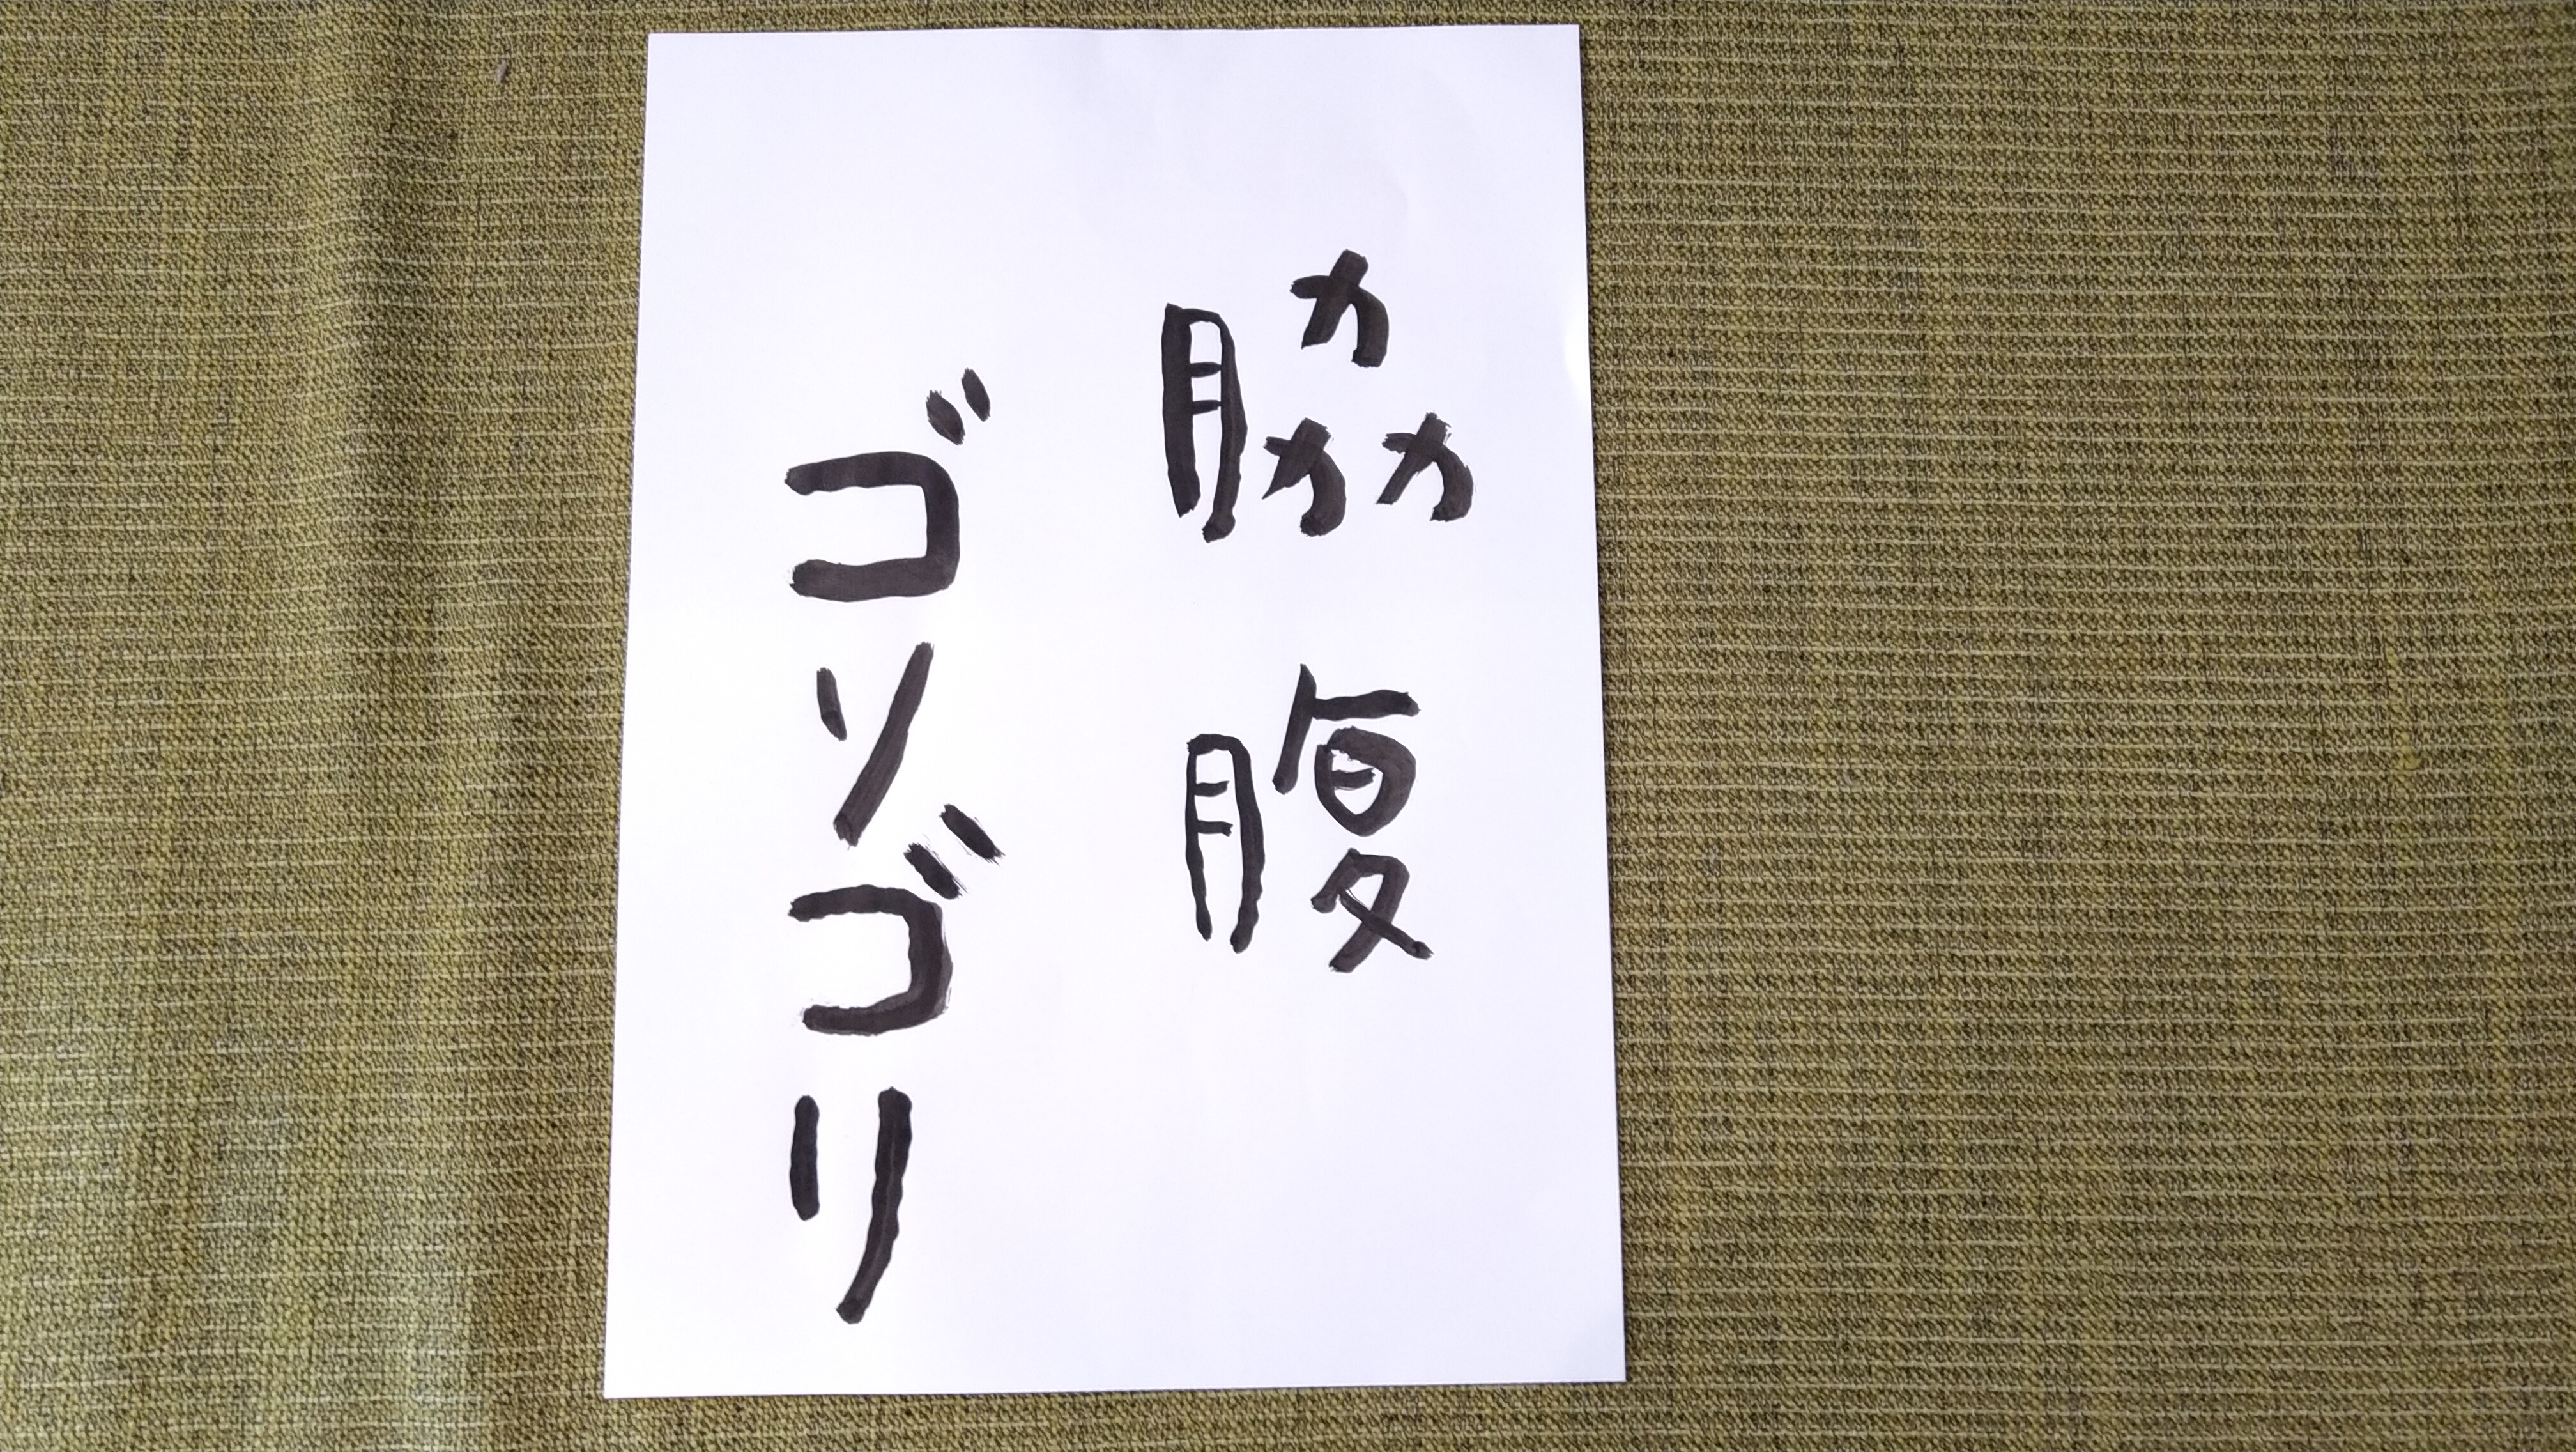 脇腹
ゴソゴリ